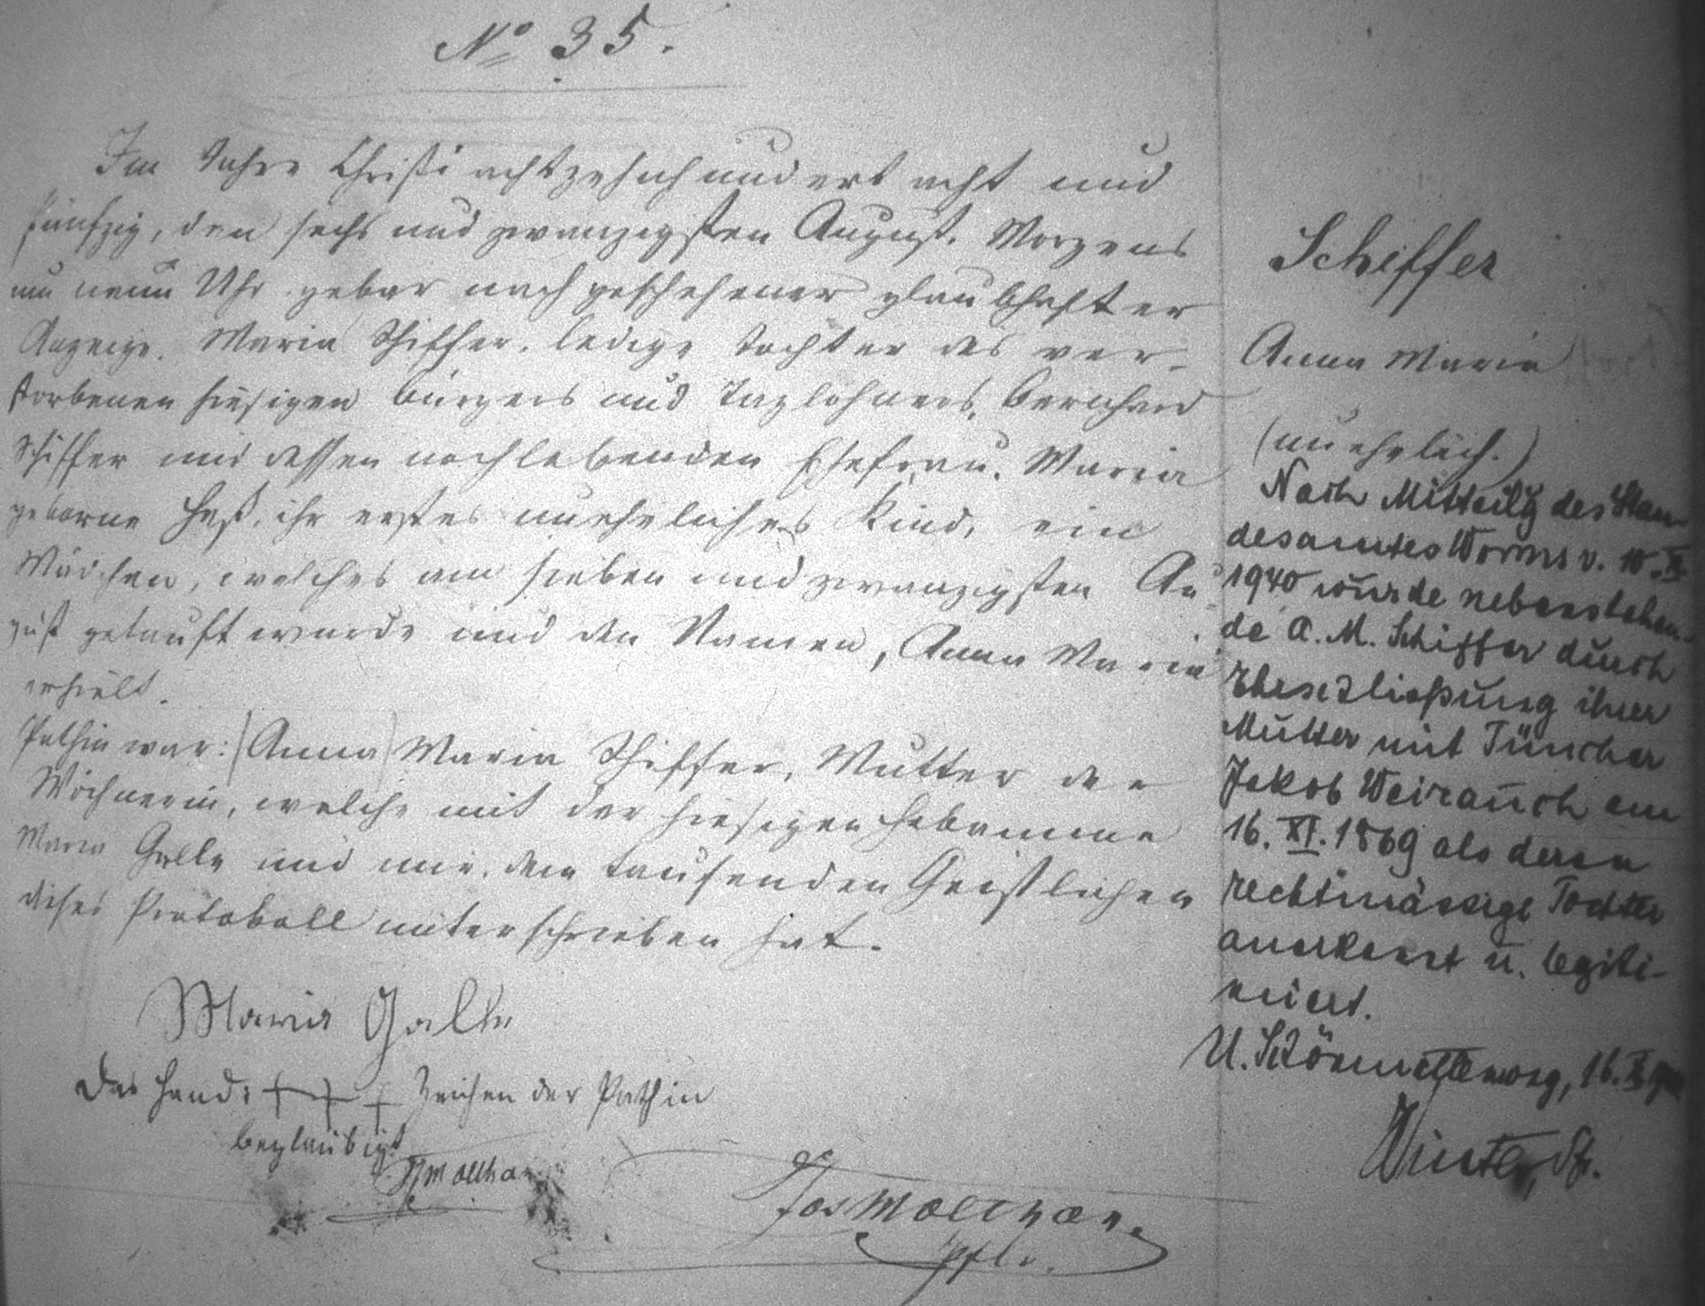 No 35.
Im Jahre Christi achtzehnhundert acht und
fünfzig, den sechs und zwanzigsten August, Morgens
um neun Uhr gebar nach geschehener glaubhafter
Anzeige, Maria Schiffer, ledige Tochter des ver-
storbenen hiesigen Bürgers und Taglöhners, Bernhard
Schiffer und dessen nochlebenden Ehefrau, Maria
geborne Heß, ihr erstes unehrliches Kind, ein
Mädchen, welches am sieben und zwanzigsten Au-
gust getauft wurde und den Namen, Anna Maria
erhielt.
Pathin war: (Anna) Maria Schiffer, Mutter der
Wöchnerin, welche mit der hiesigen Hebamme
Maria Galle und mir, dem taufenden Geistlichen
dieses Protokoll unterschrieben hat.
Maria Galle
Das Hand: +++ Zeichen der Pathin
beglaubigt
JMolthan
Jos Molthan,
Pfr.
Schiffer
Anna Maria
(unehrlich.)
Nach Mitteilg des Stan-
desamtes Worms v. 10. X.
1940 wurde nebenstehen-
de A. M. Schiffer durch
Eheschließung ihrer
Mutter mit Tüncher
Jakob Weirauch am
16. XI. 1869 als deren
rechtmässige Tochter
anerkannt u. legiti-
miert.
U. Schönmattenwag, 16. X.
Winter, Pfr.